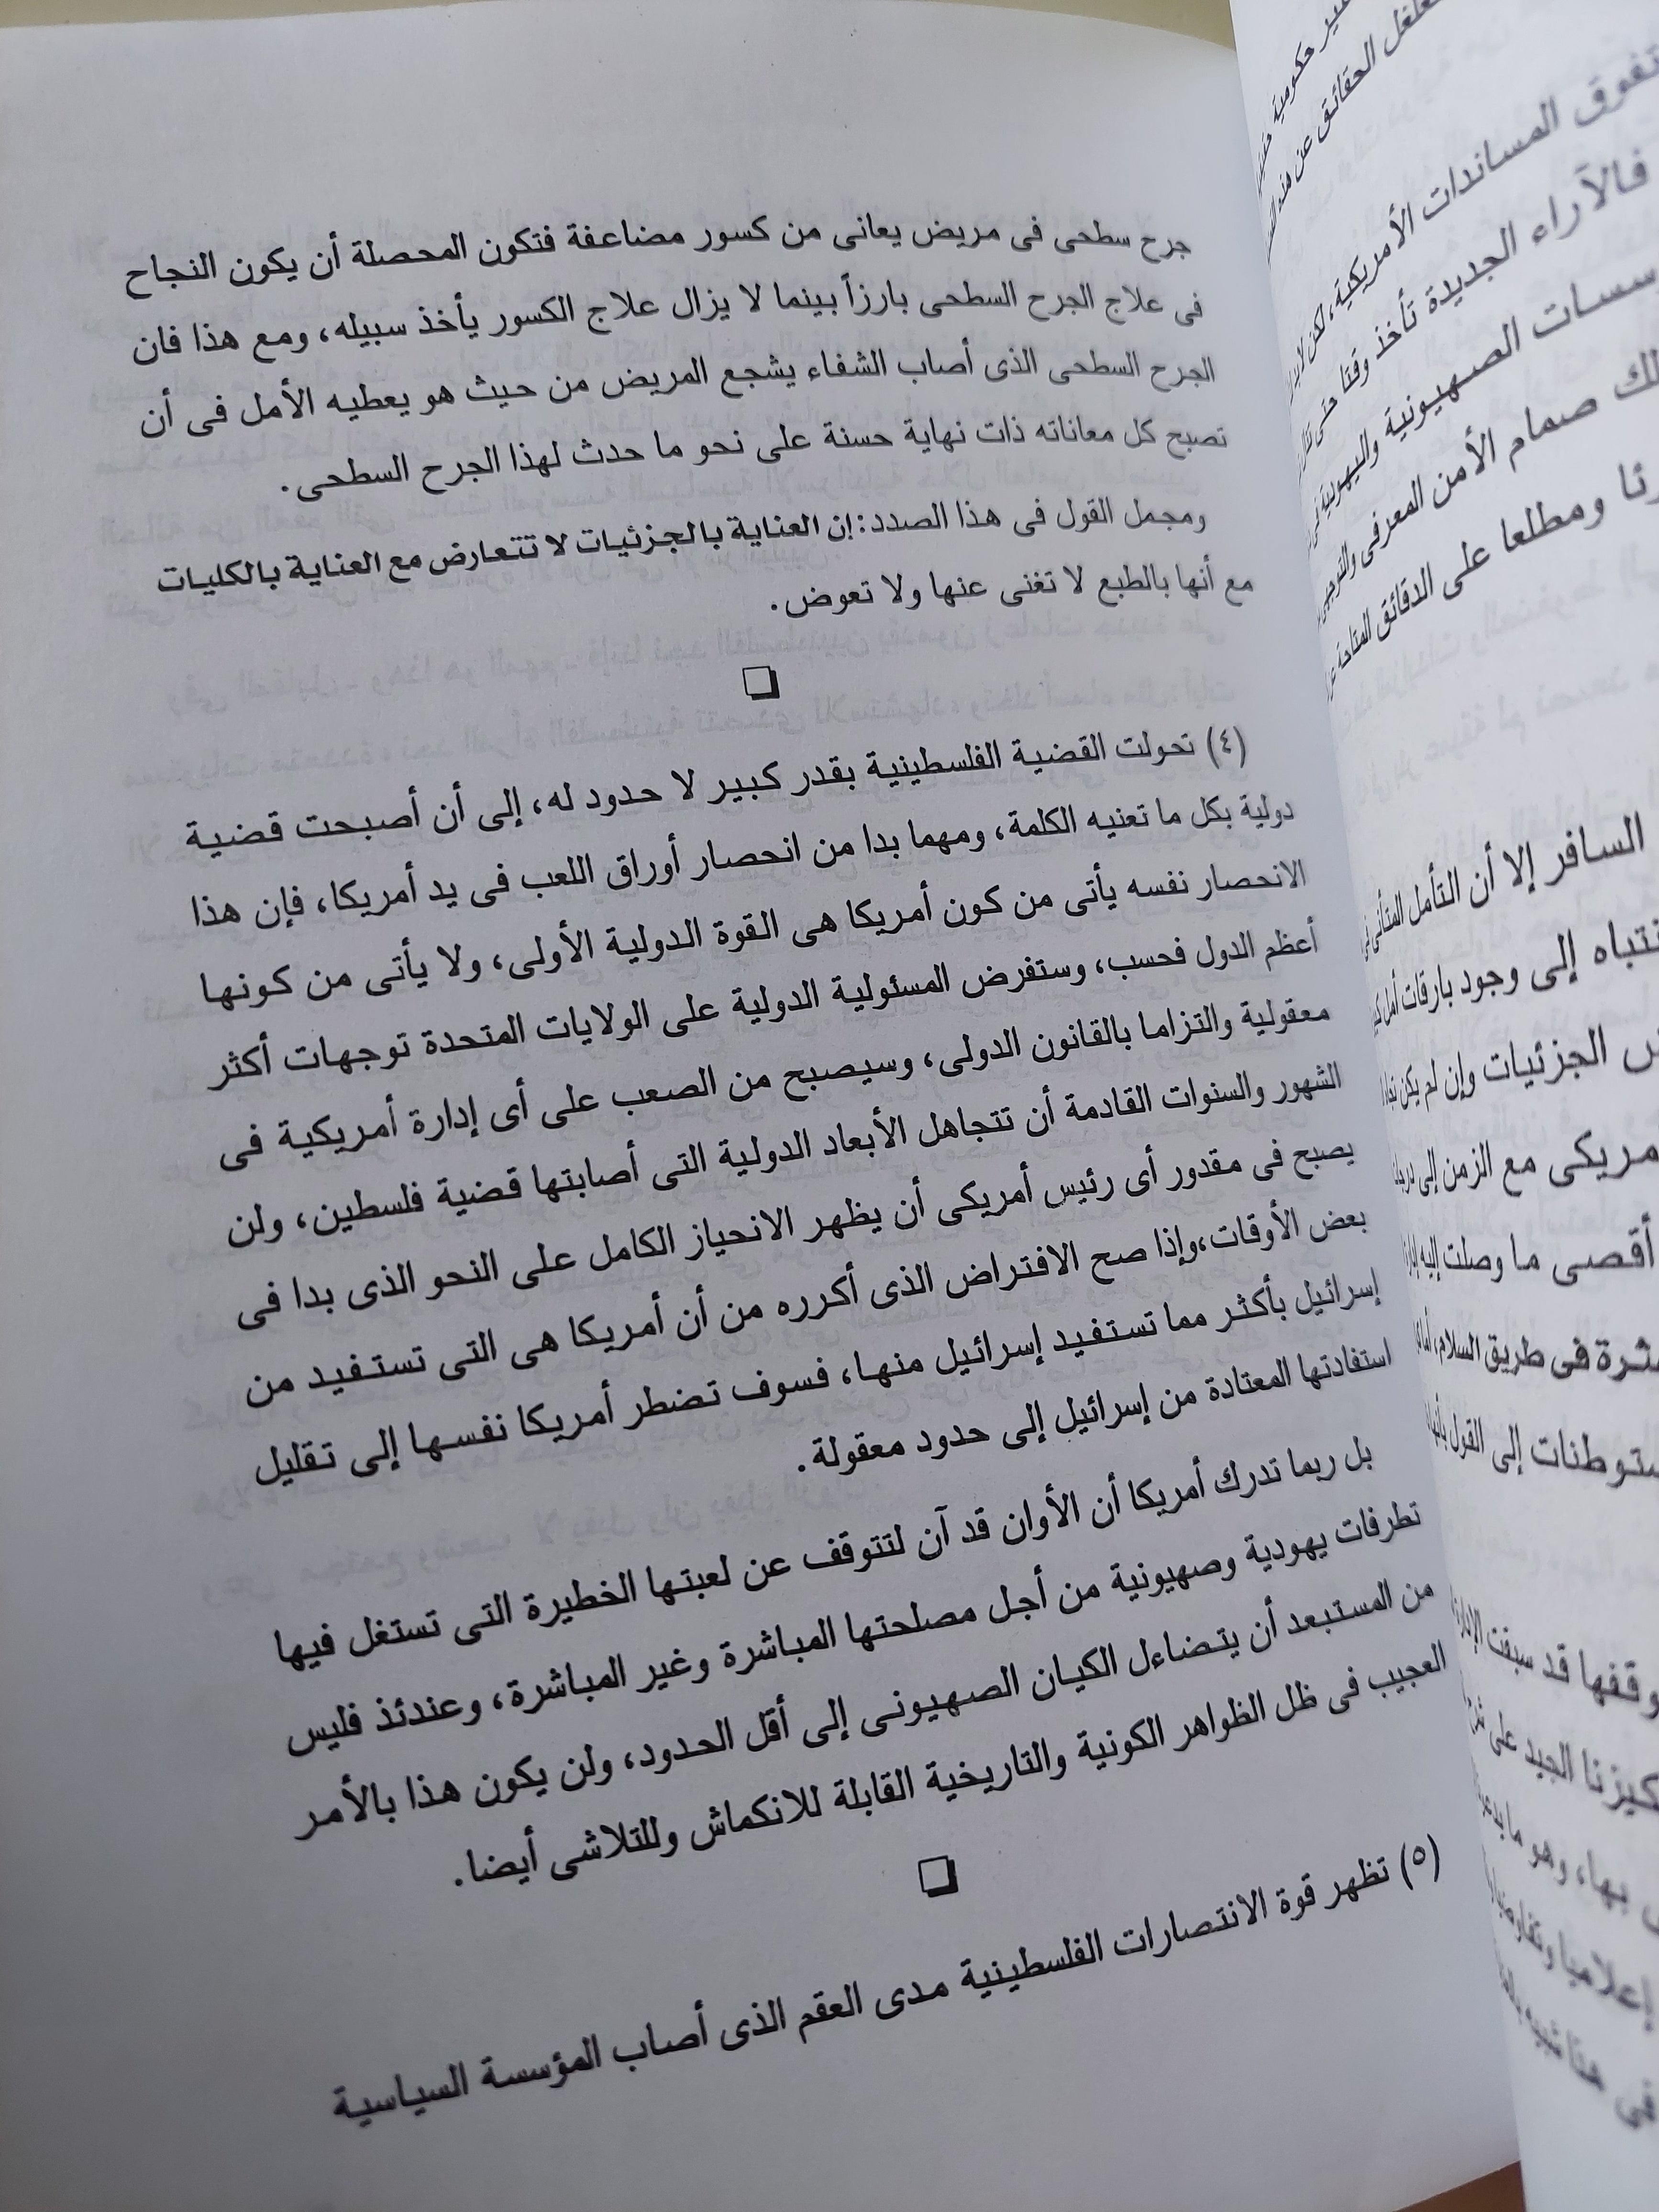 جرح سطحى فى مريض يعانى من كسور مضاعفة فتكون المحصلة أن يكون النجاح
فى علاج الجرح السطحى بارزاً بينما لا يزال علاج الكسور يأخذ سبيله، ومع هذا فان
الجرح السطحى الذى أصاب الشفاء يشجع المريض من حيث هو يعطيه الأمل فى أن
تصبح كل معاناته ذات نهاية حسنة على نحو ما حدث لهذا الجرح السطحى.
ومجمل القول فى هذا الصدد: إن العناية بالجزئيات لا تتعارض مع العناية بالكليات
مع أنها بالطبع لا تغنى عنها ولا تعوض.
(٤) تحولت القضية الفلسطينية بقدر كبير لا حدود له، إلى أن أصبحت قضية
دولية بكل ما تعنيه الكلمة، ومهما بدا من انحصار أوراق اللعب فى يد أمريكا، فإن هذا
الانحصار نفسه يأتى من كون أمريكا هى القوة الدولية الأولى، ولا يأتى من كونها
أعظم الدول فحسب، وستفرض المسئولية الدولية على الولايات المتحدة توجهات أكثر
معقولية والتزاما بالقانون الدولى، وسيصبح من الصعب على أى إدارة أمريكية فى
الشهور والسنوات القادمة أن تتجاهل الأبعاد الدولية التى أصابتها قضية فلسطين، ولن
يصبح فى مقدور أى رئيس أمريكى أن يظهر الانحياز الكامل على النحو الذى بدا فى
بعض الأوقات،وإذا صح الافتراض الذى أكرره من أن أمريكا هى التى تستفيد من
إسرائيل بأكثر مما تستفيد إسرائيل منها، فسوف تضطر أمريكا نفسها إلى تقليل
استفادتها المعتادة من إسرائيل إلى حدود معقولة.
بل ربما تدرك أمريكا أن الأوان قد آن لتتوقف عن لعبتها الخطيرة التى تستغل فيها
تطرفات يهودية وصهيونية من أجل مصلحتها المباشرة وغير المباشرة، وعندئذ فليس
من المستبعد أن يتضاءل الكيان الصهيونى إلى أقل الحدود، ولن يكون هذا بالأمر
العجيب فى ظل الظواهر الكونية والتاريخية القابلة للانكماش وللتلاشى أيضا.
(٥) تظهر قوة الانتصارات الفلسطينية مدى العقم الذى أصاب المؤسسة السياسية
حكومية
الحقائق عن هذه
تفوق المساندات الأمريكية، لكن
فالآراء الجديدة تأخذ وقتا حتى
الصهيونية واليهودية
صمام الأمن المعرفى
ومطلعا على الدقائق المتاحة
السافر إلا أن التأمل المتأنى
إلى وجود بارقات أمل
الجزئيات وإن لم يكن
مع الزمن إلى
أقصى ما وصلت إليه
فى طريق السلام،
إلى القول بأنها
قد سبقت
الجيد على
بها، وهو ما
إعلاميا
فى هذا شبيه